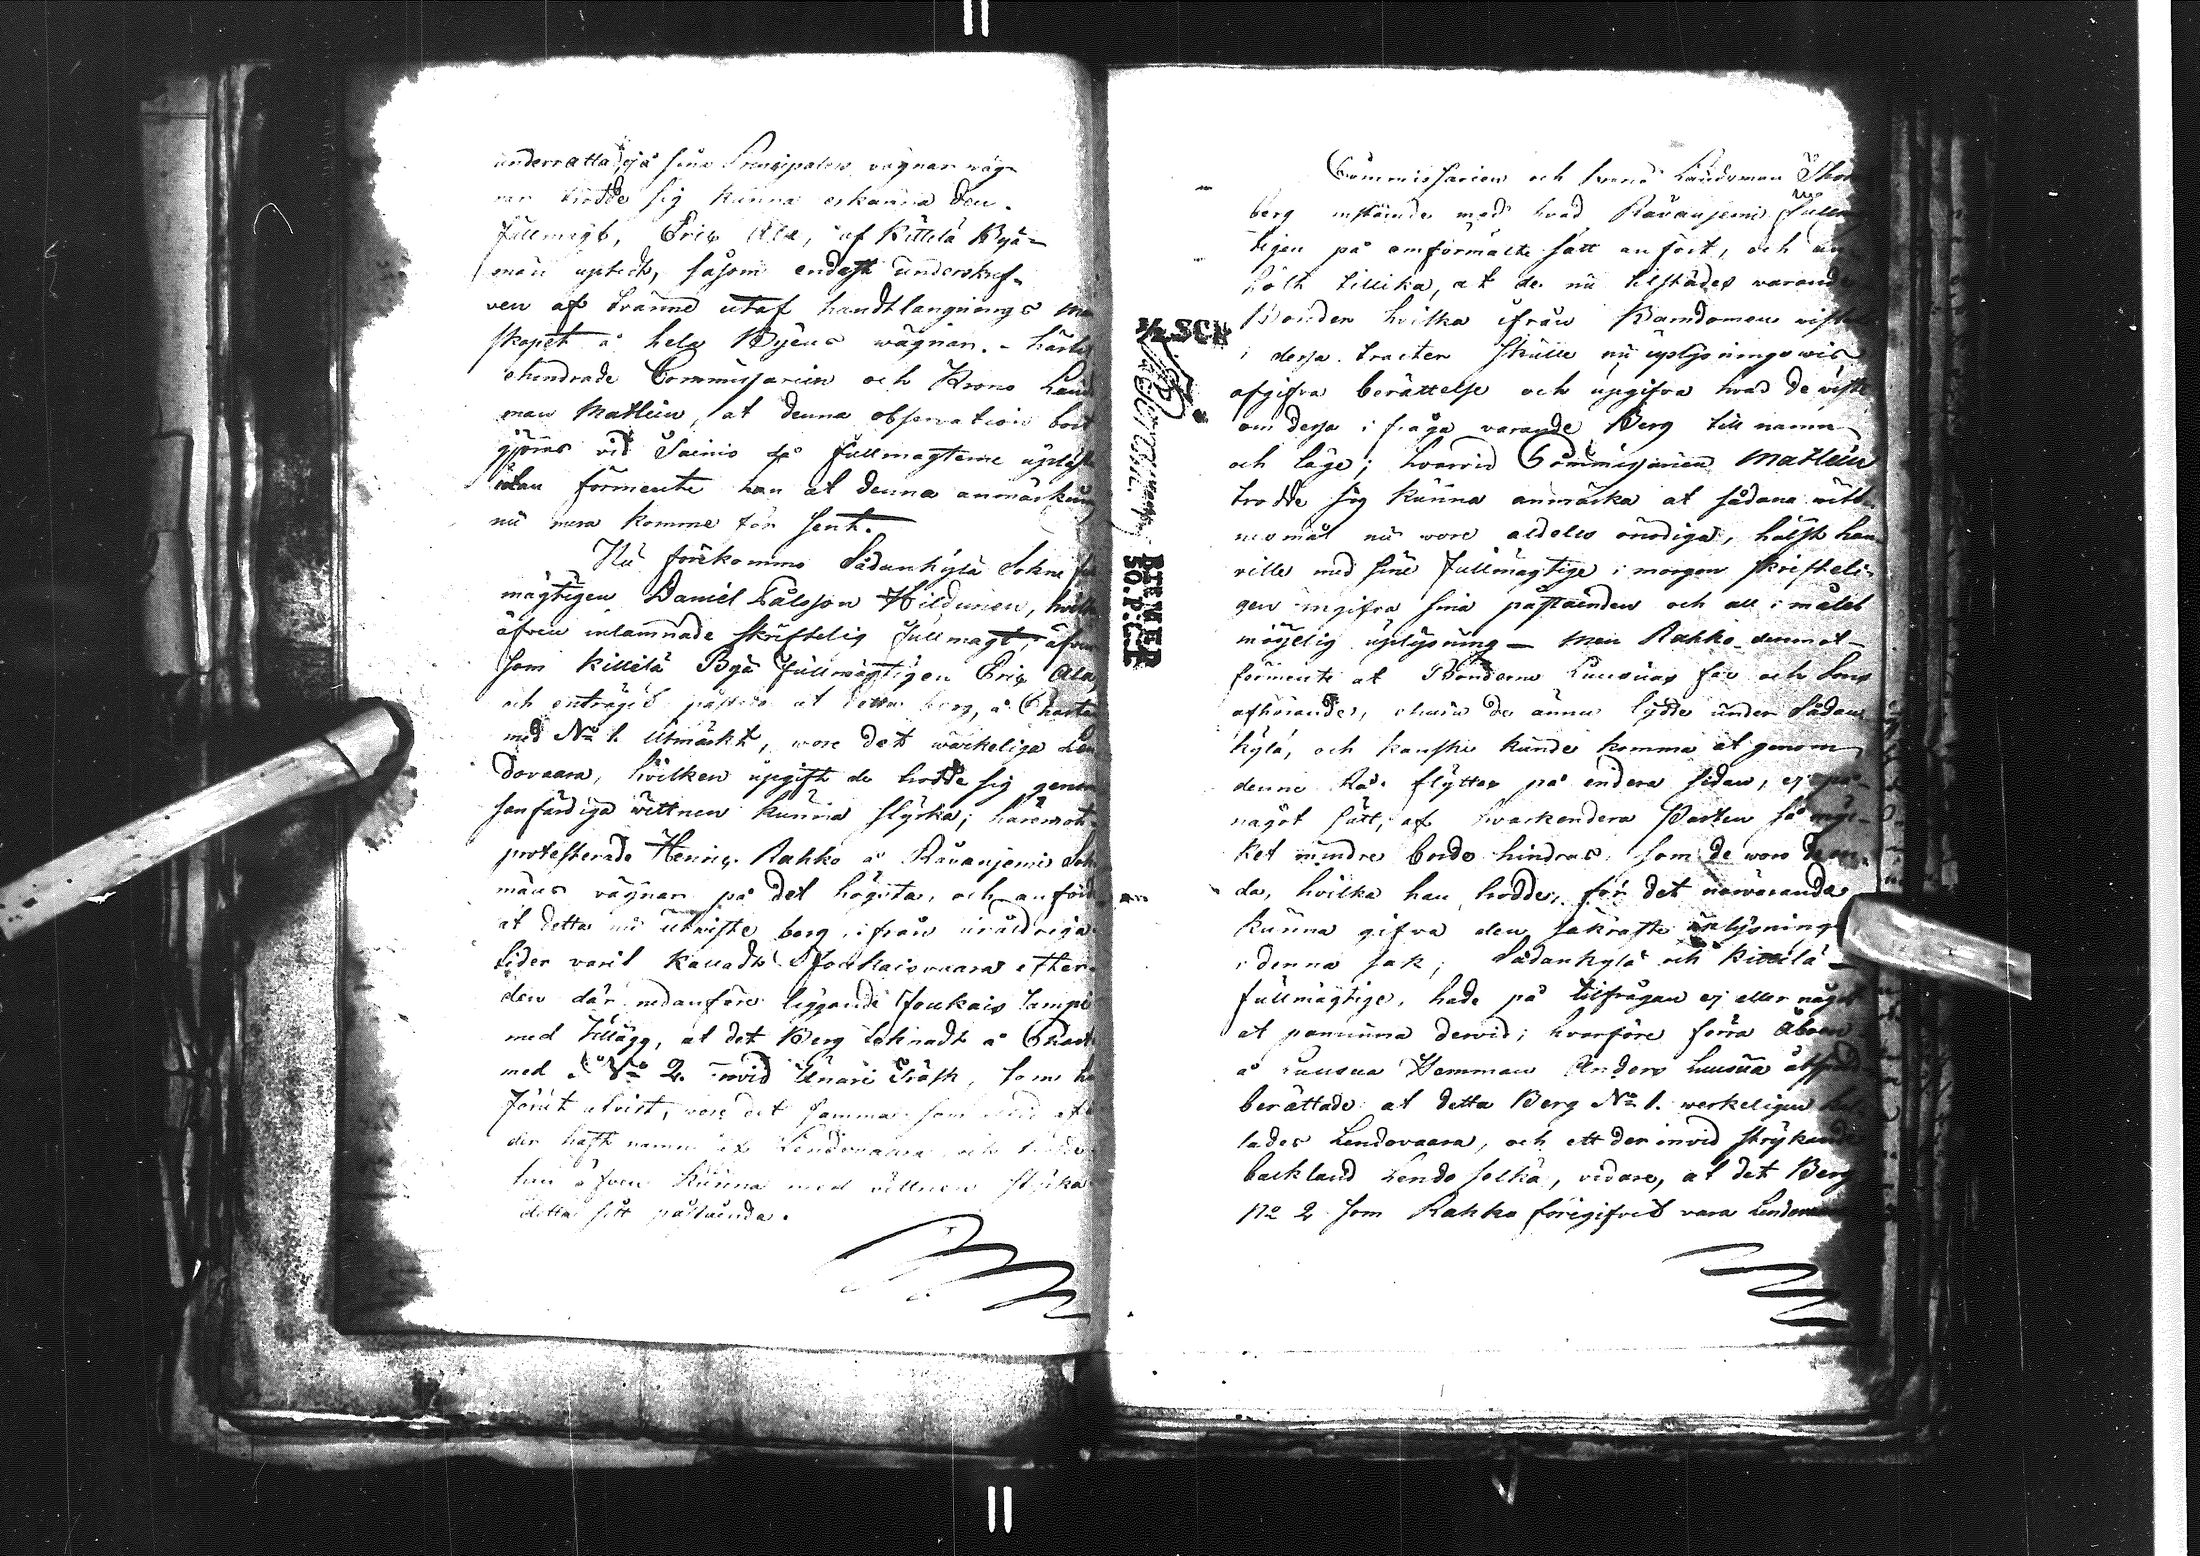 underrättad, på sine Principalers vägnar väg-
nar trodde sig kunna erkänna den
fullmagt, Eric Ala, af Kittilä Byä-
män uptedt, såsom endast underskrif-
ven af tvänne utaf handtlangnings
skapet å hela Byens wägnar. - härtil
ehindrade Commissarien och Krono Länds
man Matlein, at denna observation bort
gjöras vid Sainio då fullmagterne upläste
utan förmente han at denna anmärkning
nu mera komme för sent.
Nu förekommo Sådankylä Sokne full
mägtigen Daniel Pålsson Hildunen, hvilken
äfven inlämnade skriftelig fullmagt, äfven
som Kittilä Byä fullmägtigen Eric Ala,
och enträgit påstodo at detta berg, å Charten
med No 1. utmärkt, wore det wärkeliga Len
dovaara, hvilken upgift de trodde sig genom
sanfärdiga wittnen kunna styrka; häremot
protesterade Henric Rahko å Råvanjemi Sokne
mäns vägnar på det högsta, och anförde
at detta nu utviste berg, ifrån uråldriga
tider varit kalladt Joukaisvaara efter
den där nedanföre liggande Joukais Lampi
med tillägg, at det Berg teknadt å Chart
med No 2. invid Unari Träsk, som han
förut utvist, vore det samma som
der haft namn af Lendovaara och trodde
han äfven kunna med vittnen styrka
detta sitt påstående.
Commissarien och Krono Ländsman Thor
berg instämde med hvad Råvanjemi Fullmäg
tigen på omförmälte sätt anfört, och an
hölt tillika, at de nu tilstädes varande
Bönder hvilka ifrån Barndomen vistats
i dessa tracter skulle nu uplysningsvis
afgifva berättelse och upgifva hvad de viste
om dessa i fråga varande Berg till namn
och läge; hvarvid Commissarien Matlein
trodde sig kunna anmärka at sådana witt-
nesmål nu wore aldeles onödiga, hälst han
ville med sine fullmägtige i morgon skrifteli-
gen ingifva sina påståenden och all i målet
möjelig uplysning - men Rahko deremot
förmente at Bönderne Luusuas för och sons
afhörande, ehuru de ännu lydde under Sådan
kylä, och kanske kunde komma at genom
denne Rå flyttas på endera sidan, ej på
något sätt, af hvarkendera Parten så myc-
ket mindre borde hindras, som de woro de en-
da, hvilka han trodde, för det närvarande
kunna gifva den säkraste uplysning
i denna sak; Sådankylä och Kittilä
fullmägtige, hade på tilfrågan ej eller något
at påminna dervid; hvarföre förra Åboen
å Luusua Hemman Anders Luusua åtspord
berättade at detta Berg No 1. werkeligen kal
lades Lendovaara, och ett der invid strykande
backland Lendo Selkä, vidare, at det Berg
No 2 som Rahko föregifvit vara Lendovaara